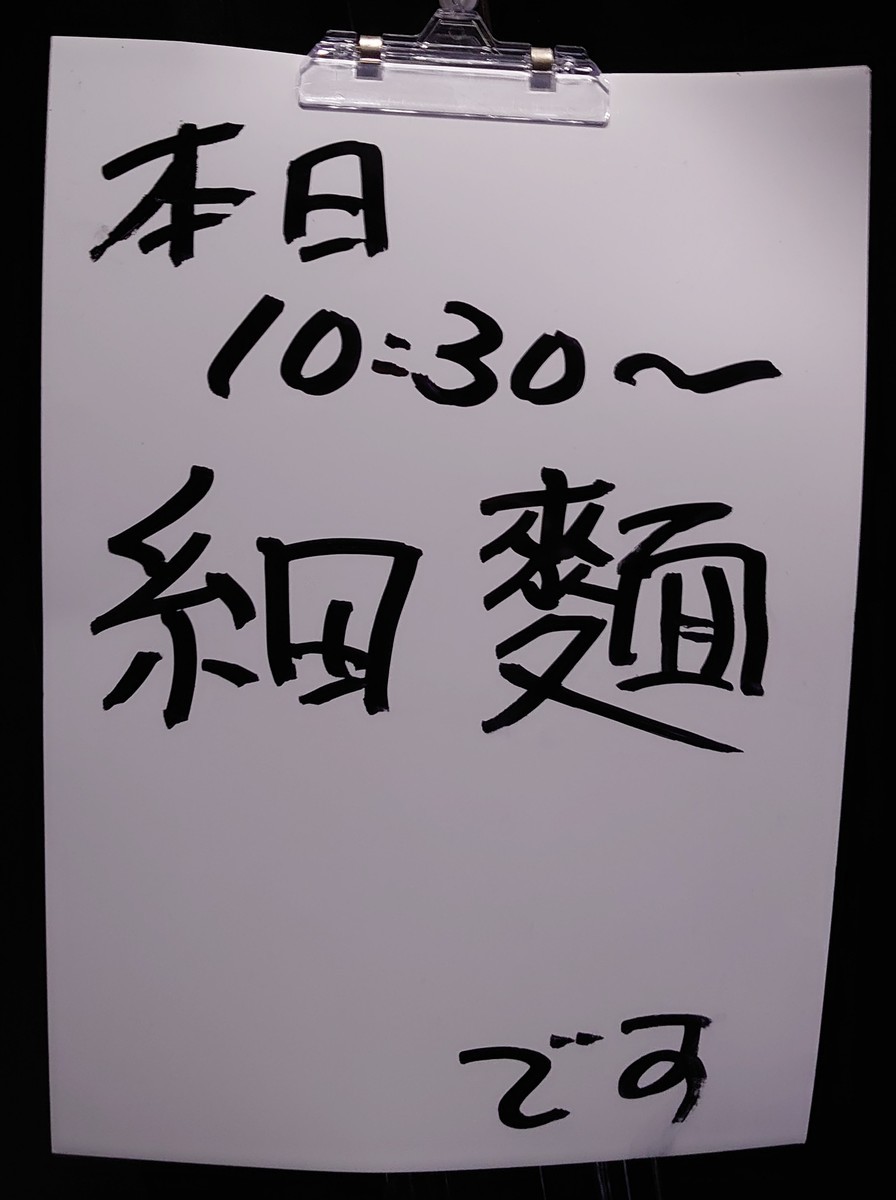 本日
10:30〜
細麵
です